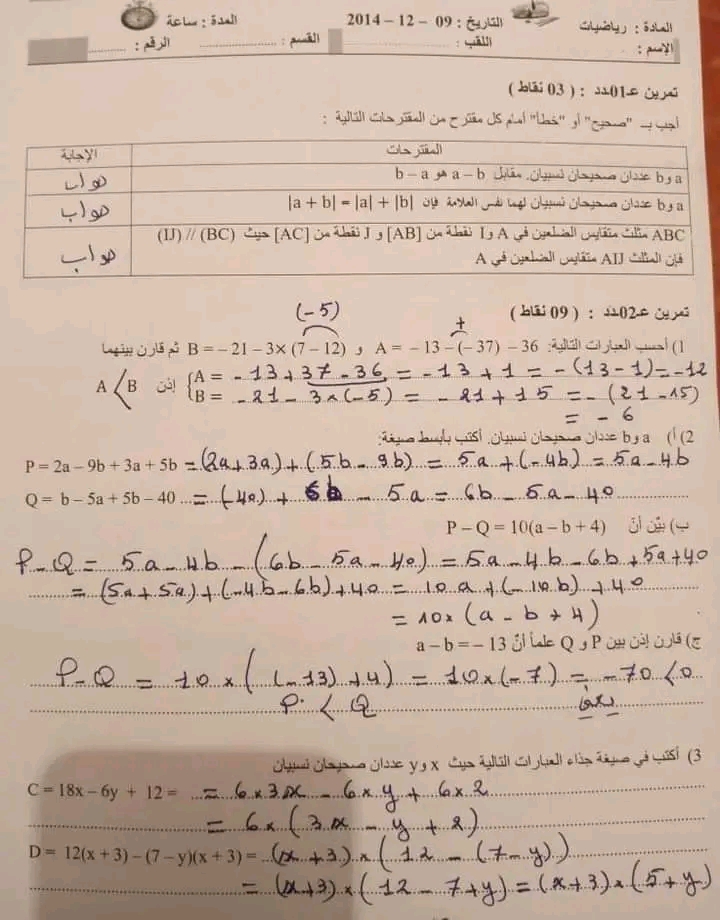 المادة : رياضيات التاريخ : 09 - 12 - 2014 المدة : ساعة
الإسم : اللقب : القسم : الرقم :
تمرين عـ01ـدد : ( 03 نقاط )
أجب بـ "صحيح" أو "خطأ" أمام كل مقترح من المقترحات التالية :
المقترحات الإجابة
a و b عددان صحيحان نسبيان. مقابل a – b هو b – a صواب
a و b عددان صحيحان نسبيان لهما نفس العلامة فإن |a + b| = |a| + |b| صواب
ABC مثلث متقايس الضلعين في A و I نقطة من [AB] و J نقطة من [AC] حيث (IJ) // (BC)
فإن المثلث AIJ متقايس الضلعين في A صواب
تمرين عـ02ـدد : ( 09 نقاط )
(-5)
+
1) أحسب العبارات التالية: A = – 13 – (– 37) – 36 و B = – 21 – 3× (7 – 12) ثم قارن بينهما
A = -13 + 37 - 36 = -13 + 1 = -(13-1) = -12
إذن A < B
B = -21 - 3×(-5) = -21 + 15 = -(21-15)
= -6
2) أ) a و b عددان صحيحان نسبيان. أكتب بأبسط صيغة:
P = 2a – 9b + 3a + 5b = (2a+3a)+(5b-9b) = 5a+(-4b) = 5a-4b
Q = b – 5a + 5b – 40 = (-40) + 6b - 5a = 6b - 5a - 40
ب) بيّن أنّ P – Q = 10(a – b + 4)
P-Q = 5a-4b-(6b-5a-40) = 5a-4b-6b+5a+40
= (5a+5a)+(-4b-6b)+40 = 10a+(-10b)+40
= 10×(a-b+4)
ج) قارن إذن بين P و Q علما أنّ a – b = – 13
P-Q = 10×((-13)+4) = 10×(-7) = -70 < 0
يعني P < Q
3) أكتب في صيغة جذاء العبارات التالية حيث x و y عددان صحيحان نسبيان
C = 18x – 6y + 12 = = 6×3x - 6×y + 6×2
= 6×(3x - y + 2)
D = 12(x + 3) – (7 – y)(x + 3) = (x+3)×(12-(7-y))
= (x+3)×(12-7+y) = (x+3)×(5+y)